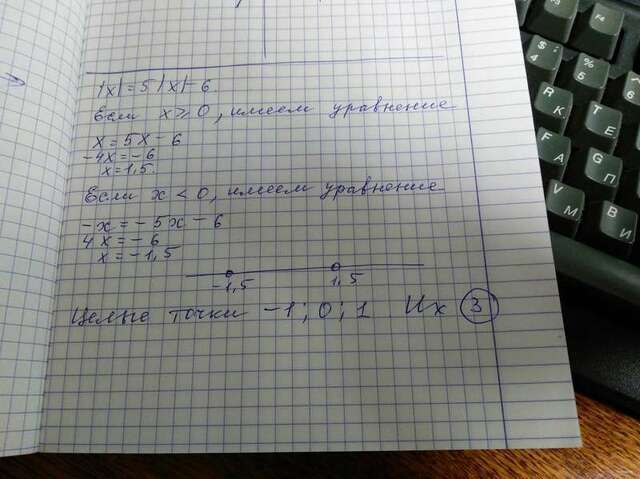 |x| = 5|x| - 6
Если x ≥ 0, имеем уравнение
x = 5x - 6
-4x = -6
x = 1,5.
Если x < 0, имеем уравнение
-x = -5x - 6
4x = -6
x = -1,5
-1,5 1,5
Целые точки -1; 0; 1 Их 3
$ 4
% 5
6
R К
T Е
F А
G П
V М
B И